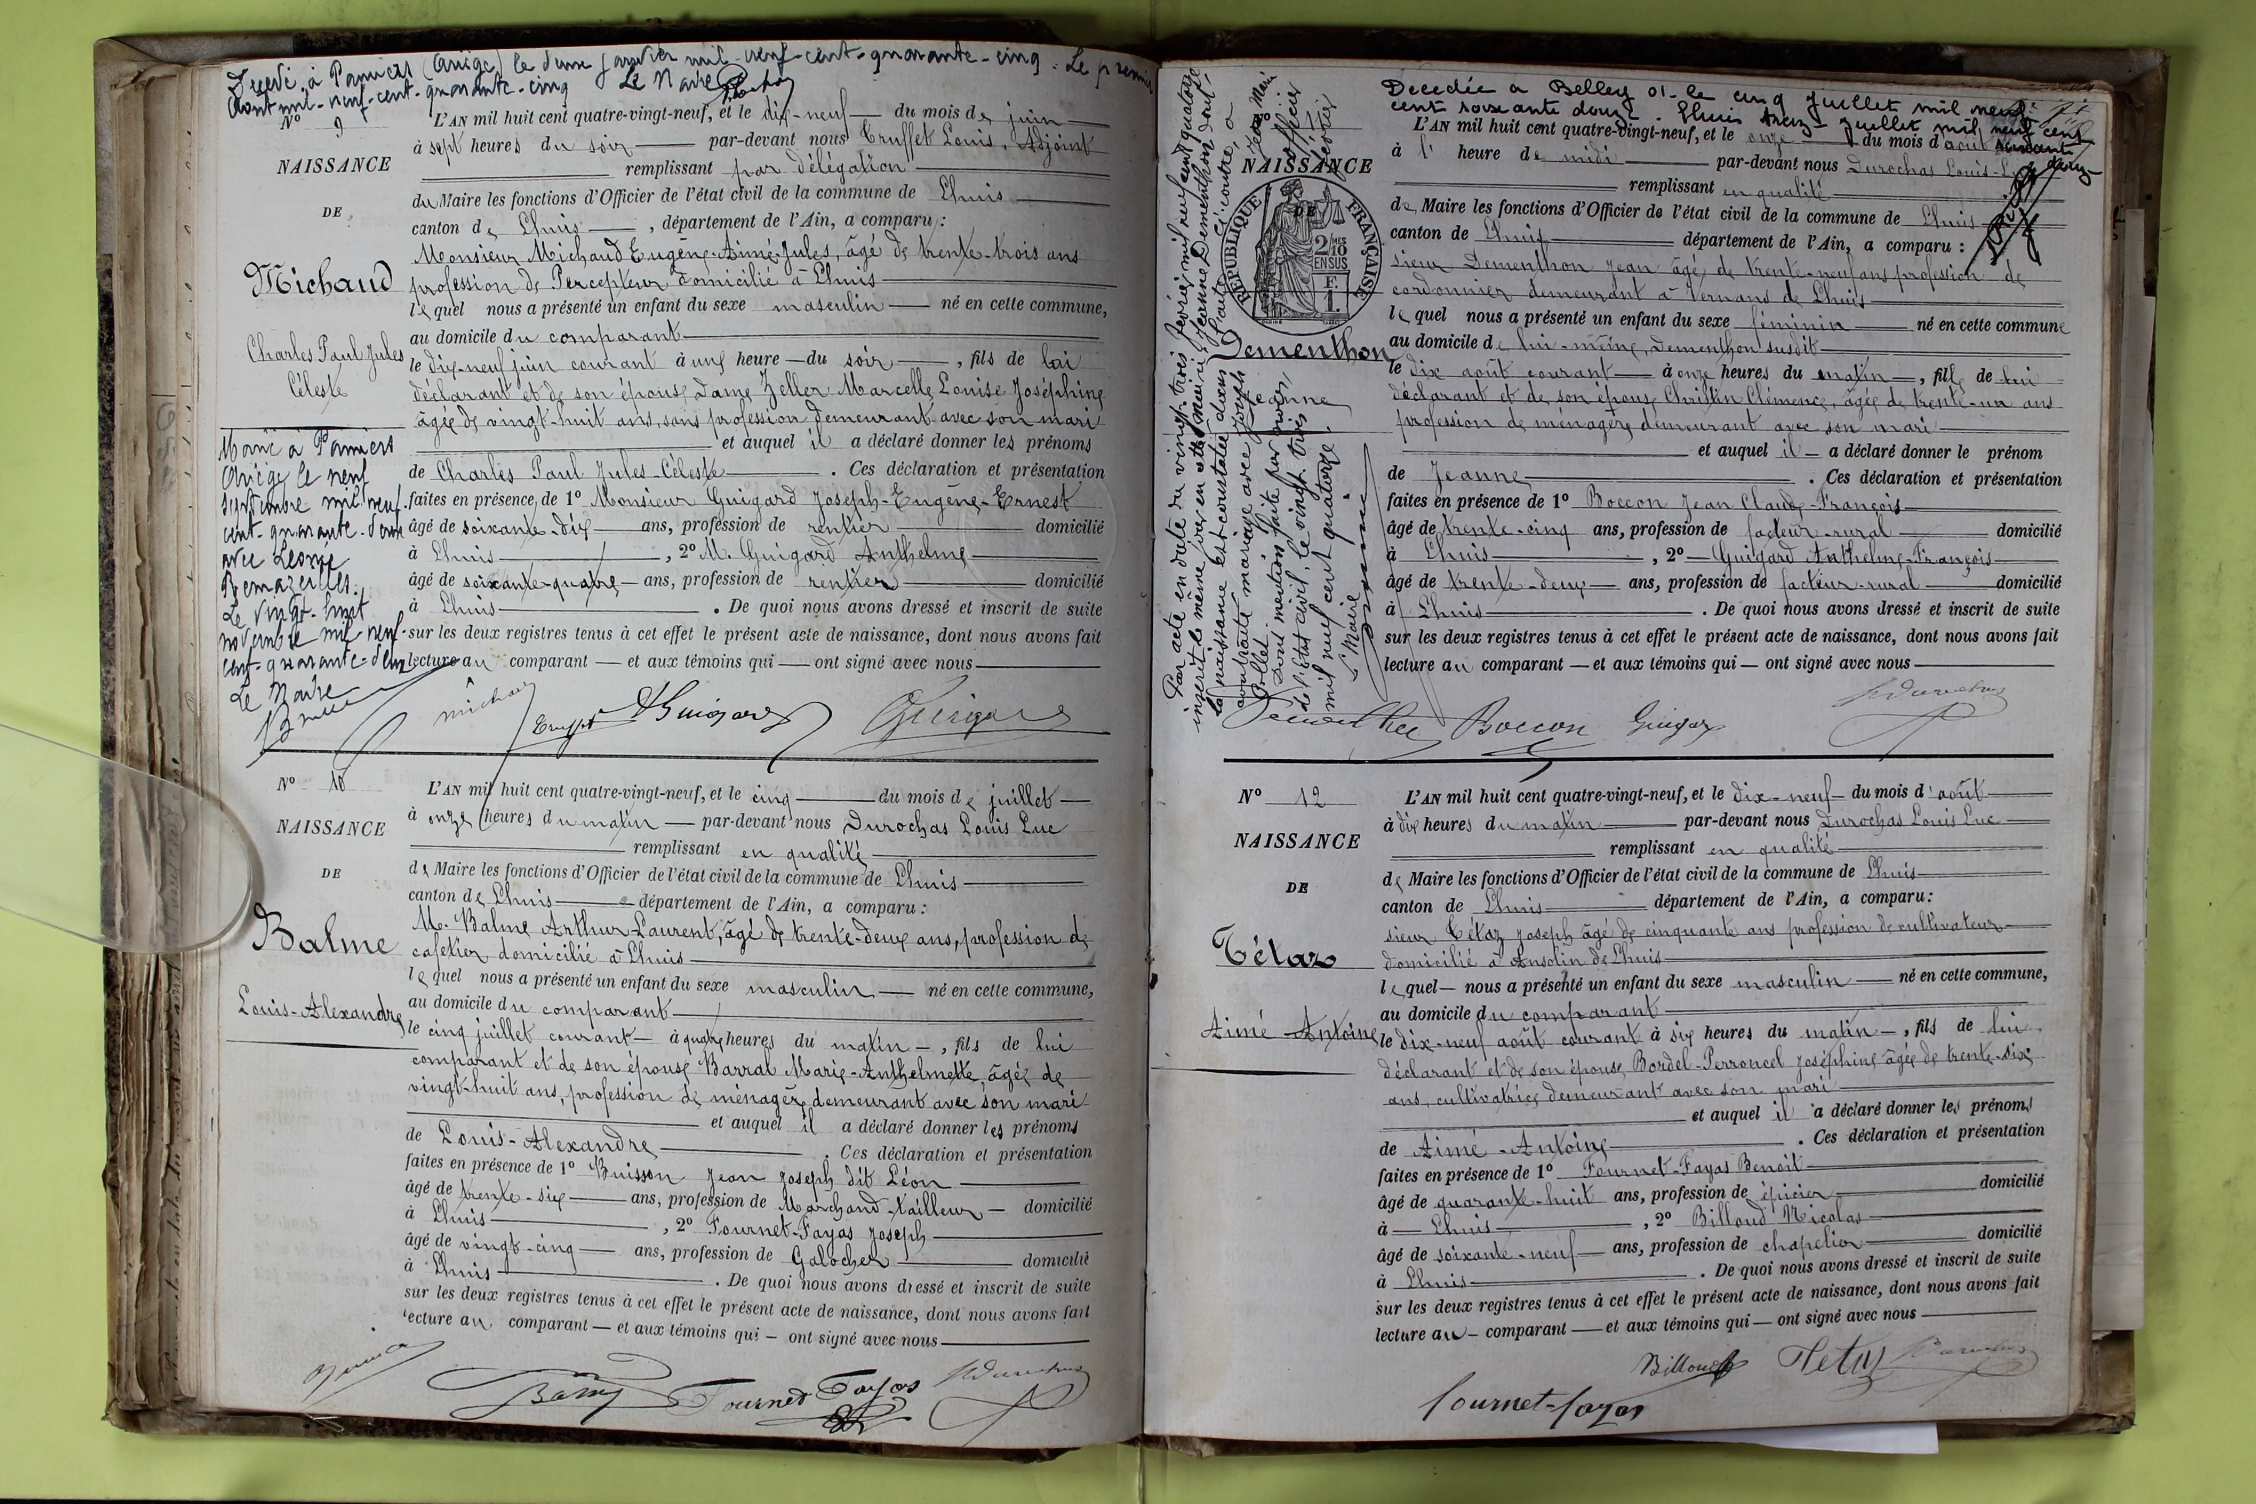 Décédé à Pamiers (Ariège) le deux janvier mil-neuf-cent-quarante-cinq. Le premier
août mil-neuf-cent-quarante-cinq Le Maire
N° 9
NAISSANCE
DE
Michaud
Charles Paul Jules
Céleste
Marié à Pamiers
Ariège le neuf
septembre mil neuf
cent-quarante-deux
avec Léonie
Remazeilles.
Le vingt-huit
novembre mil-neuf-
cent-quarante-deux
Le Maire
L'AN mil huit cent quatre-vingt-neuf, et le dix-neuf du mois de juin
à sept heures du soir par-devant nous Truffet Louis, Adjoint
remplissant par délégation
du Maire les fonctions d'Officier de l'état civil de la commune de Lhuis
canton de Lhuis, département de l'Ain, a comparu :
Monsieur Michaud Eugène-Aimé-Jules, âgé de trente-trois ans
profession de Percepteur domicilié à Lhuis
lequel nous a présenté un enfant du sexe masculin né en cette commune,
au domicile du comparant
le dix-neuf juin courant à une heure du soir, fils de lui
déclarant et de son épouse Dame Zeller Marcelle Louise Joséphine
âgée de vingt-huit ans, sans profession demeurant avec son mari
et auquel il a déclaré donner les prénoms
de Charles Paul Jules-Céleste. Ces déclaration et présentation
faites en présence, de 1° Monsieur Guigard Joseph-Eugène-Ernest
âgé de soixante-dix ans, profession de rentier domicilié
à Lhuis, 2° M. Guigard Anthelme
âgé de soixante-quatre ans, profession de rentier domicilié
à Lhuis. De quoi nous avons dressé et inscrit de suite
sur les deux registres tenus à cet effet le présent acte de naissance, dont nous avons fait
lecture au comparant et aux témoins qui ont signé avec nous
Michaud Truffet Guigard Guigard
N° 10
NAISSANCE
DE
Balme
Louis-Alexandre
L'AN mil huit cent quatre-vingt-neuf, et le cinq du mois de juillet
à onze heures du matin par-devant nous Durochas Louis Luc
remplissant en qualité
de Maire les fonctions d'Officier de l'état civil de la commune de Lhuis
canton de Lhuis département de l'Ain, a comparu :
M. Balme Arthur-Laurent, âgé de trente-deux ans, profession de
cafetier domicilié à Lhuis
lequel nous a présenté un enfant du sexe masculin né en cette commune,
au domicile du comparant
le cinq juillet courant à quatre heures du matin, fils de lui
comparant et de son épouse Barral Marie-Anthelmette, âgée de
vingt-huit ans, profession de ménagère demeurant avec son mari
et auquel il a déclaré donner les prénoms
de Louis-Alexandre. Ces déclaration et présentation
faites en présence de 1° Buisson Jean Joseph dit Léon
âgé de trente-six ans, profession de Marchand-tailleur domicilié
à Lhuis, 2° Fournet-Fayas Joseph
âgé de vingt-cinq ans, profession de Galocher domicilié
à Lhuis. De quoi nous avons dressé et inscrit de suite
sur les deux registres tenus à cet effet le présent acte de naissance, dont nous avons fait
lecture au comparant et aux témoins qui ont signé avec nous
Fournet Fayas
Décédée à Belley 01- le cinq juillet mil neuf
cent soixante douze. Lhuis treize juillet mil neuf cent
soixante
douze
N° 11
NAISSANCE
DE
RÉPUBLIQUE FRANÇAISE
2/10 EN SUS
F. 1.
Dementhon
Jeanne
Par acte en date du vingt-trois février mil neuf cent quatorze
inscrit le même jour en cette Mairie, Jeanne Dementhon dont
la naissance est constatée dans l'acte ci-contre, a
contracté mariage avec Joseph Jean Marie
Pollet.
Dont mention faite par nous, officier
de l'état civil, le vingt trois février
mil neuf cent quatorze.
Le Maire
L'AN mil huit cent quatre-vingt-neuf, et le onze du mois d'août
à l' heure de midi par-devant nous Durochas Louis-Luc
remplissant en qualité
de Maire les fonctions d'Officier de l'état civil de la commune de Lhuis
canton de Lhuis département de l'Ain, a comparu :
sieur Dementhon Jean âgé de trente-neuf ans profession de
cordonnier demeurant à Vernans de Lhuis
lequel nous a présenté un enfant du sexe féminin né en cette commune
au domicile de lui-même, Dementhon susdit
le dix août courant à onze heures du matin, fille de lui
déclarant et de son épouse Christin Clémence, âgée de trente-un ans
profession de ménagère demeurant avec son mari
et auquel il a déclaré donner le prénom
de Jeanne. Ces déclaration et présentation
faites en présence de 1° Boccon Jean Claude-François
âgé de trente-cinq ans, profession de facteur-rural domicilié
à Lhuis, 2° Guigard Anthelme-François
âgé de trente-deux ans, profession de facteur-rural domicilié
à Lhuis. De quoi nous avons dressé et inscrit de suite
sur les deux registres tenus à cet effet le présent acte de naissance, dont nous avons fait
lecture au comparant et aux témoins qui ont signé avec nous
Boccon Guigard
N° 12
NAISSANCE
DE
Tétaz
Aimé-Antoine
L'AN mil huit cent quatre-vingt-neuf, et le dix-neuf du mois d'août
à dix heures du matin par-devant nous Durochas Louis Luc
remplissant en qualité
de Maire les fonctions d'Officier de l'état civil de la commune de Lhuis
canton de Lhuis département de l'Ain, a comparu :
sieur Tétaz Joseph âgé de cinquante ans profession de cultivateur
domicilié à Ansolin de Lhuis
lequel nous a présenté un enfant du sexe masculin né en cette commune,
au domicile du comparant
le dix-neuf août courant à six heures du matin, fils de lui
déclarant et de son épouse Bordel-Perroncel Joséphine âgée de trente-six
ans, cultivatrice demeurant avec son mari
et auquel il a déclaré donner les prénoms
de Aimé-Antoine. Ces déclaration et présentation
faites en présence de 1° Fournet-Fayas Benoit
âgé de quarante-huit ans, profession de épicier domicilié
à Lhuis, 2° Billoud Nicolas
âgé de soixante-neuf ans, profession de chapelier domicilié
à Lhuis. De quoi nous avons dressé et inscrit de suite
sur les deux registres tenus à cet effet le présent acte de naissance, dont nous avons fait
lecture au comparant et aux témoins qui ont signé avec nous
Billoud Tetaz
fournet-fayas